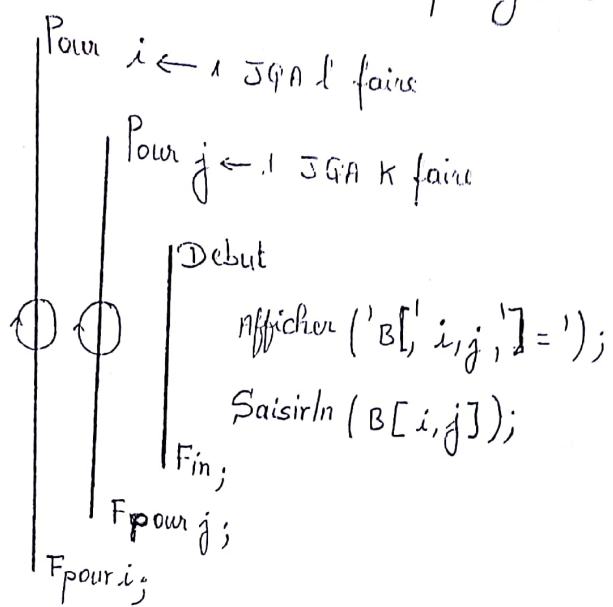 Pour i ← 1 JQA l faire
Pour j ← 1 JQA K faire
Debut
Afficher ('B[', i,j,']=');
Saisirln (B[i,j]);
Fin;
Fpour j;
Fpour i;